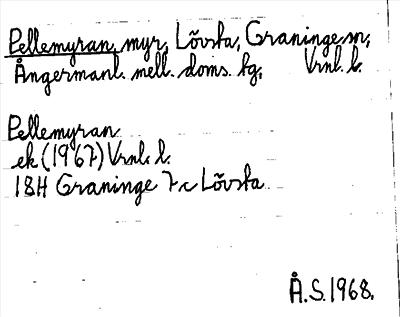 Pellemyran, myr, Lövsta, Graninge sn,
Ångermanl. mell. doms. tg, Vrnl. l.
Pellemyran
ek (1967) Vrnl. l.
18H Graninge 7c Lövsta
Å.S. 1968.